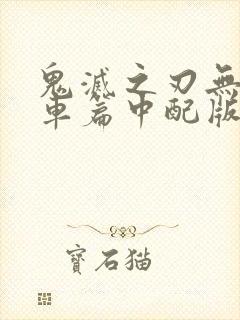 鬼滅之刃無
車篇中配版
寶石猫